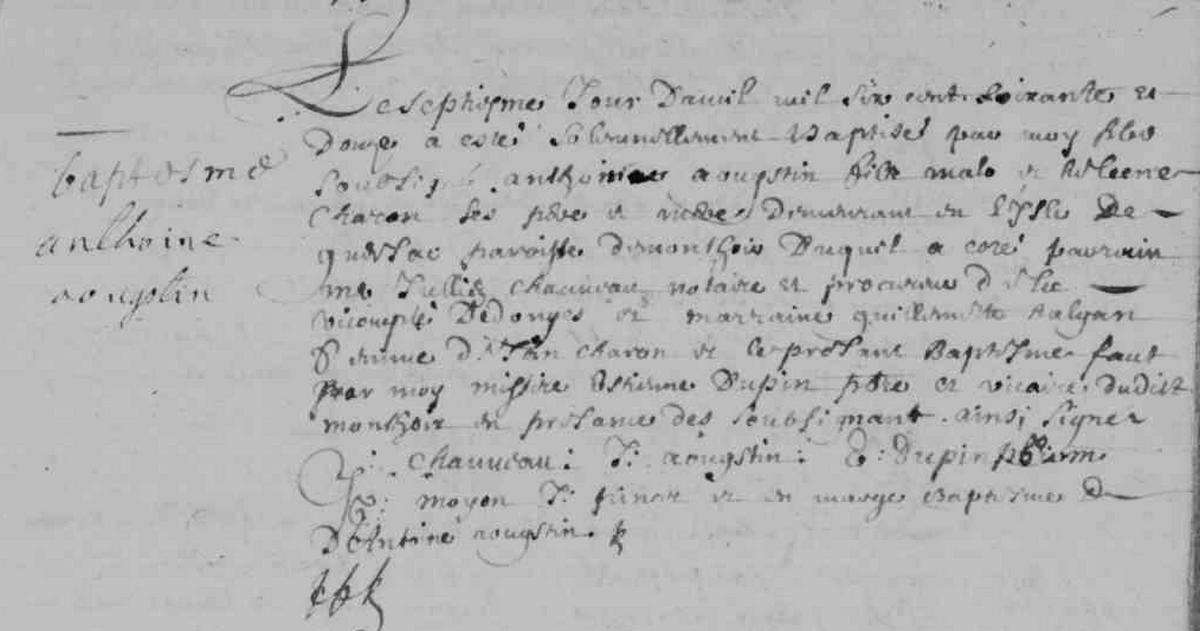 baptesme
anthoine
aougstin
Le septiesme Jour Davril mil six cent soixante et
Douze a esté solennellement Baptisé par moy
soubsigné anthoinne aougstin filz malo et heleene
Charon ses pere et mere Demeurant en l'isle De
paroisse demonthoir Duquel a esté parrain
me Jullien Chauveau notaire et procureur d
vicompté Dedonges et marraine guillemette halgan
femme de Jan Charon et le presant Baptesme faict
Par moy missire Estienne Dupin pbre et vicaire dudict
monthoir en presance des soubsignant ainsi signer
J: Chauveau: J: aougstin: E: Dupin pbre
moyon J: et en marge Baptesme De
D'Antine aougstin